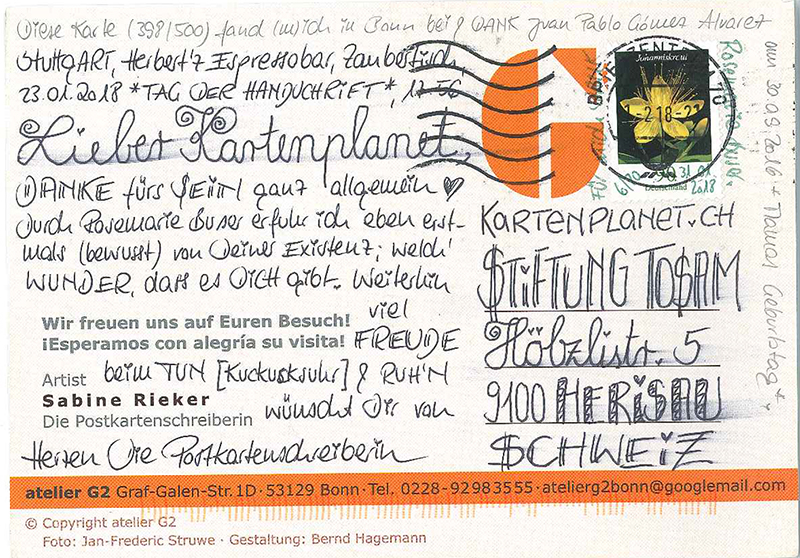 Diese Karte (398/500) fand (m)ich in Bonn bei & DANK Juan Pablo Gómes Alvarez
am 30.09.2016 * Mamas Geburtstag *
StuttgART, Herbert'z Espressobar, Zaubertisch,
23.01.2018 *TAG DER HANDSCHRIFT*, 11:56
Lieber Kartenplanet,
DANKE fürs SEIN ganz allgemein ♥
Durch Rosemarie Buser erfuhr ich eben erst-
mals (bewusst) von Deiner Existenz; welch'
WUNDER, dass es DICH gibt. Weiterhin
viel
Wir freuen uns auf Euren Besuch!
¡Esperamos con alegría su visita! FREUDE
Artist beim TUN [Kuckucksuhr] & RUH'N
Sabine Rieker
Die Postkartenschreiberin wünscht Dir von
Herzen Die Postkartenschreiberin
Johanniskraut
Deutschland
31.01.
2018
KARTENPLANET.CH
STIFTUNG TOSAM
Höbzlistr. 5
9100 HERISAU
SCHWEIZ
atelier G2 Graf-Galen-Str. 1D · 53129 Bonn · Tel. 0228-92983555 · atelierg2bonn@googlemail.com
© Copyright atelier G2
Foto: Jan-Frederic Struwe · Gestaltung: Bernd Hagemann